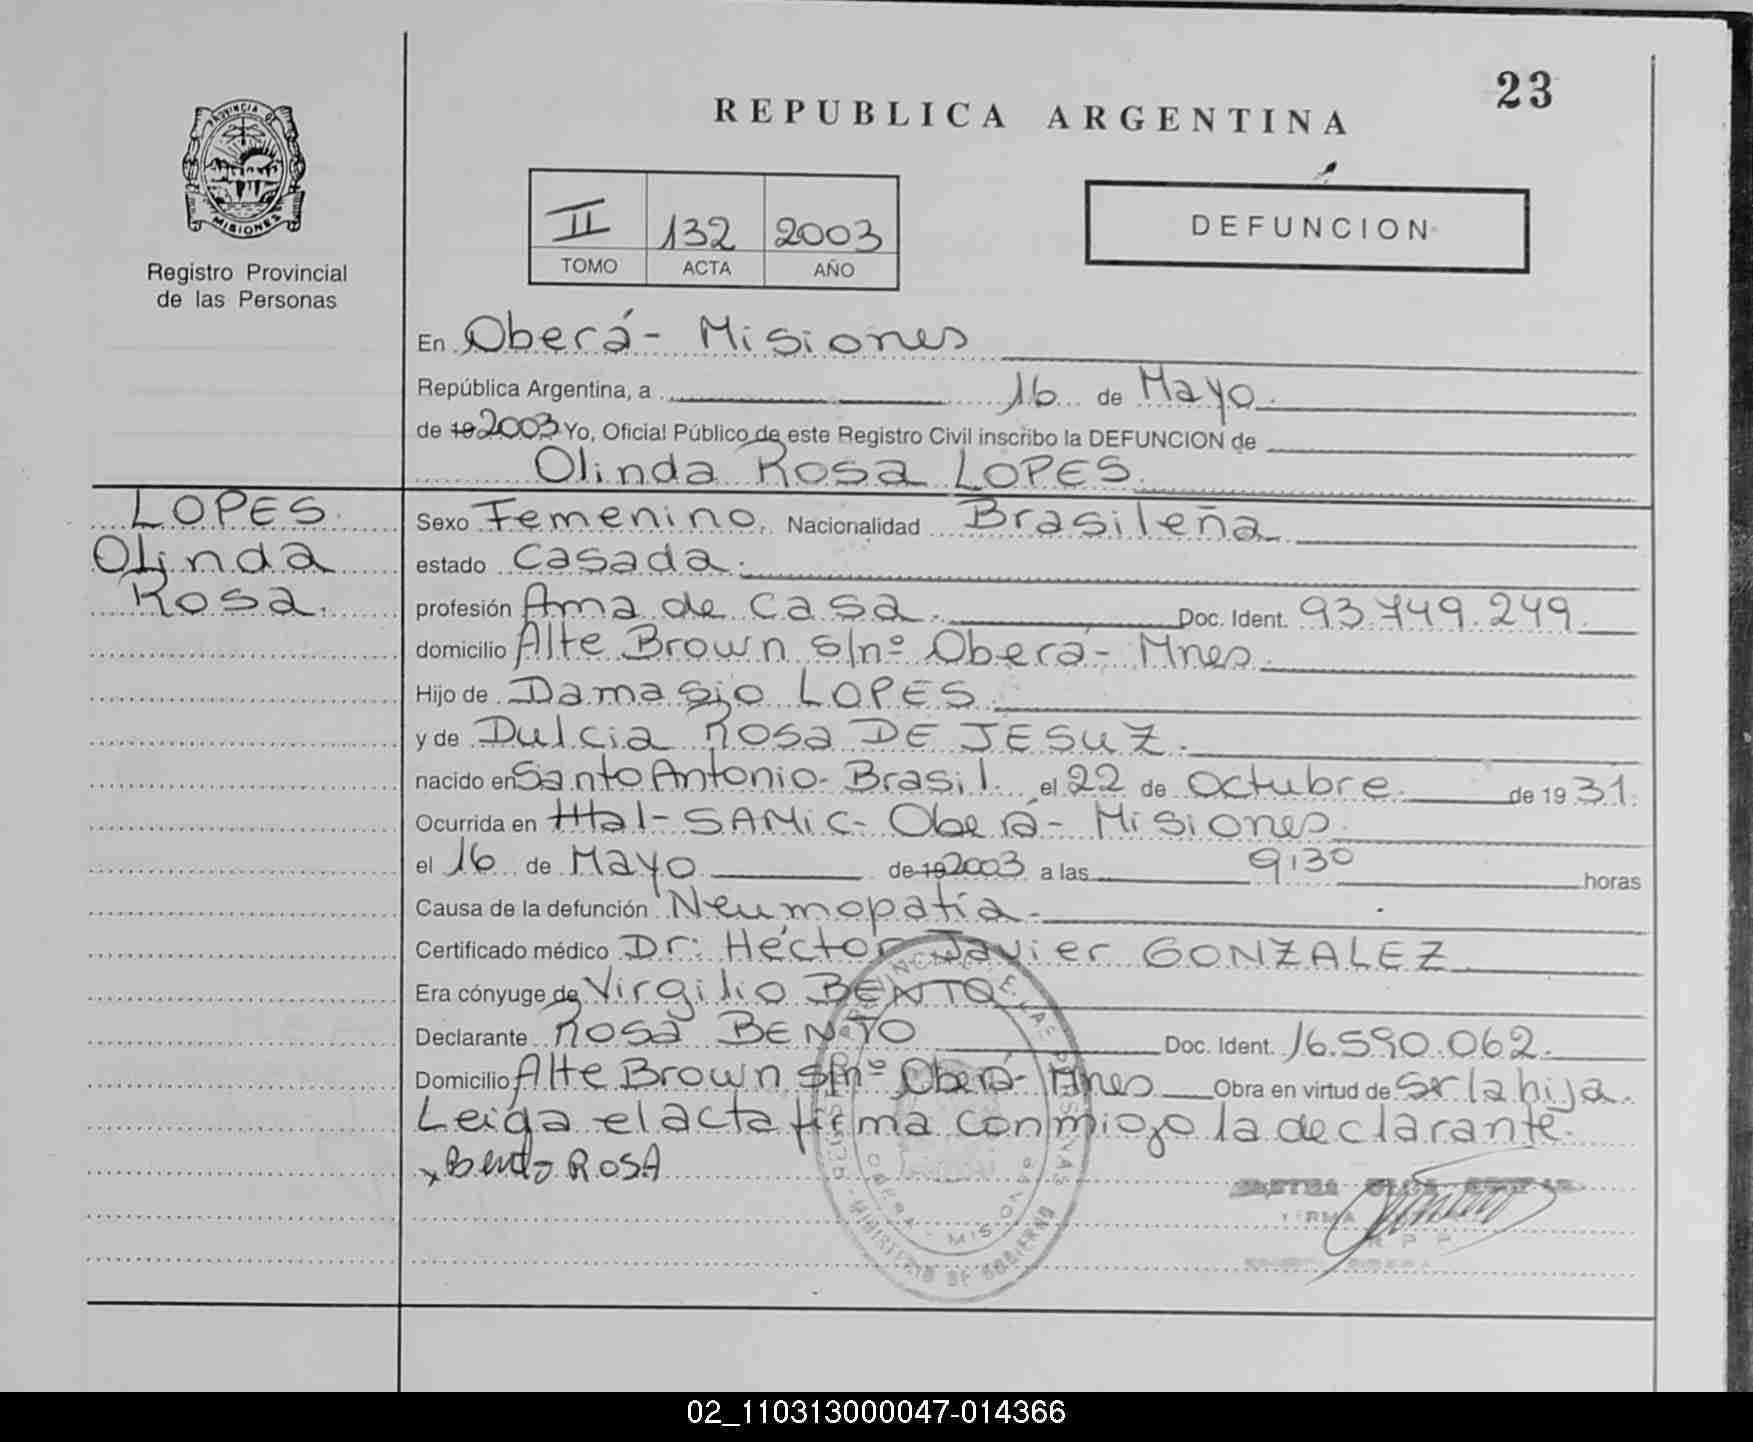 23
REPUBLICA ARGENTINA
PROVINCIA DE
MISIONES
Registro Provincial
de las Personas
II 132 2003
TOMO ACTA AÑO
DEFUNCION
En Oberá - Misiones
República Argentina, a 16 de Mayo
de 19 2003 Yo, Oficial Público de este Registro Civil inscribo la DEFUNCION de
Olinda Rosa LOPES
LOPES
Olinda
Rosa.
Sexo Femenino. Nacionalidad Brasileña
estado Casada.
profesión Ama de casa. Doc. Ident. 93.749.249.
domicilio Alte Brown s/nº Oberá - Mnes
Hijo de Damasio LOPES
y de Dulcia Rosa DE JESUZ.
nacido en Santo Antonio - Brasil. el 22 de Octubre. de 19 31.
Ocurrida en Htal - SAMiC - Oberá - Misiones.
el 16 de Mayo de 19 2003 a las 9,30 horas
Causa de la defunción Neumopatía.
Certificado médico Dr: Héctor Javier GONZALEZ
Era cónyuge de Virgilio BENTO
Declarante Rosa BENTO Doc. Ident. 16.590.062.
Domicilio Alte Brown s/nº Oberá - Mnes Obra en virtud de Ser la hija.
Leída el acta firma conmigo la declarante.
x Bento ROSA
MINISTERIO DE GOBIERNO
02_110313000047-014366